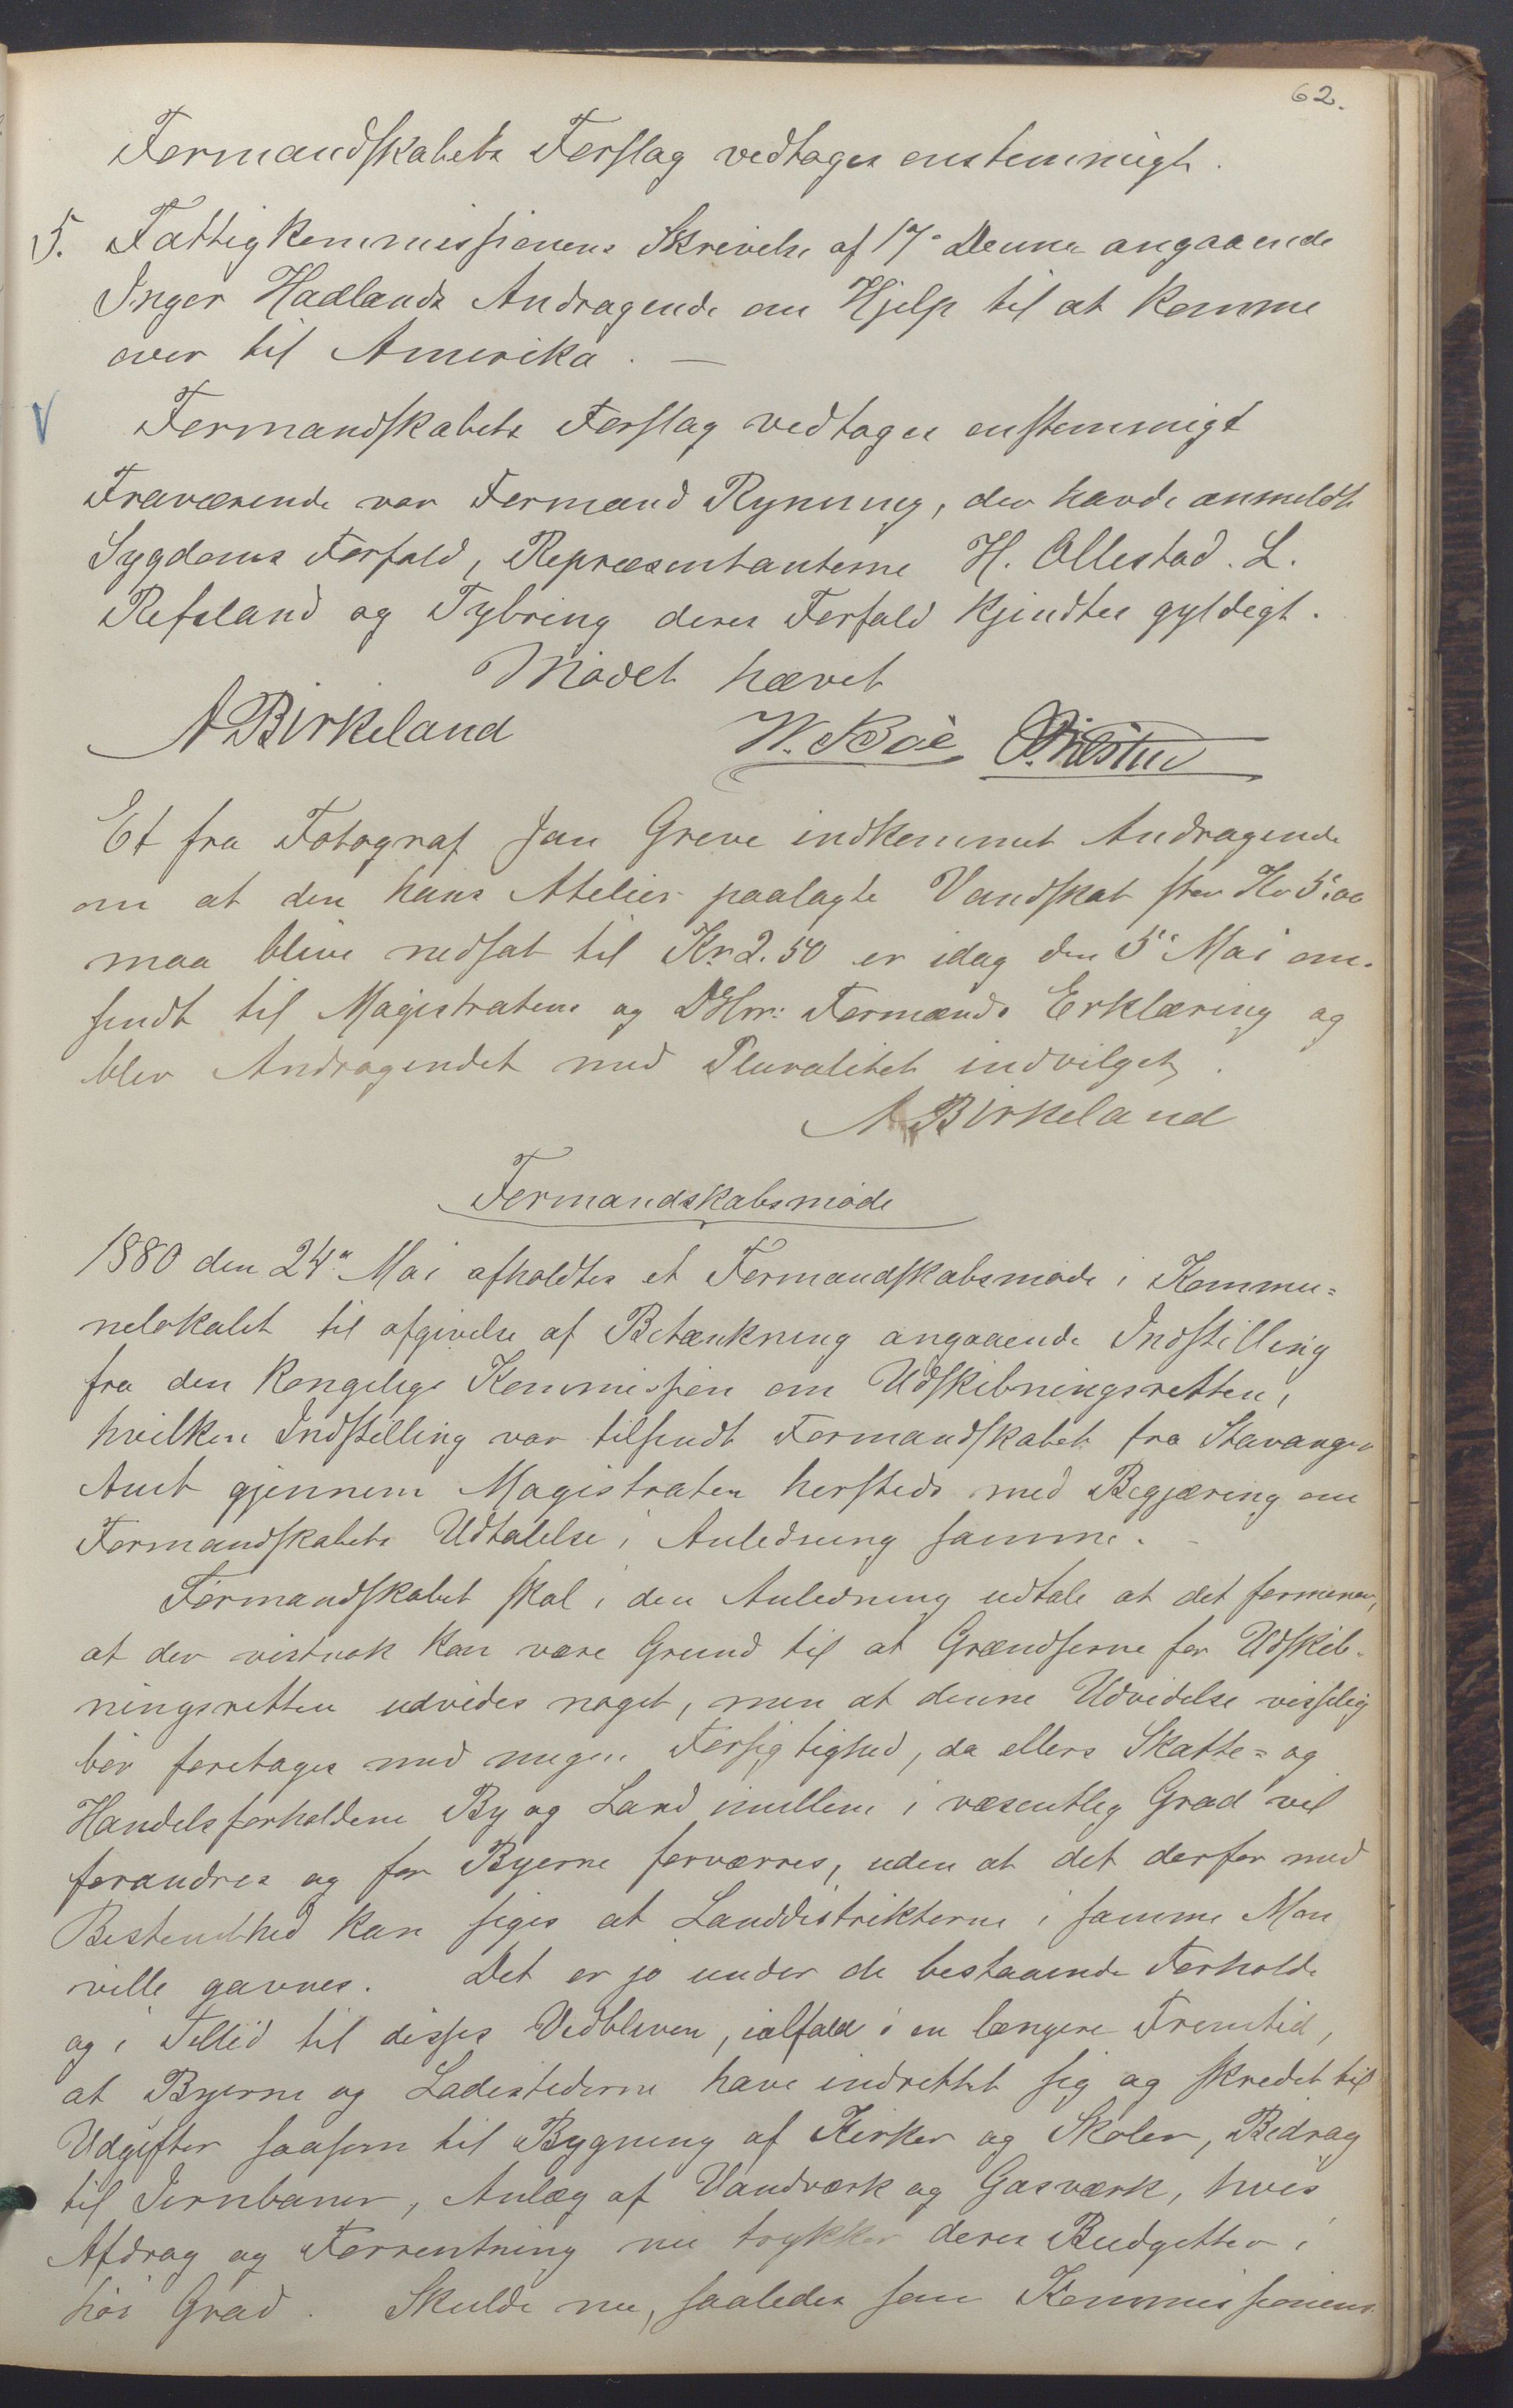 62.
Formandskabets Forslag vedtages enstemmigt.
5. Fattigkommissionens Skrivelse af 17de Denne angaaende
Inger Hadlands Andragende om Hjelp til at komme
over til Amerika. —
V Formandskabets Forslag vedtages enstemmigt
Fraværende var Formand Rynning, der havde anmeldt
Sygdoms Forfald, Repræsentanterne H. Ollestad. L.
Refsland og Tybring deres Forfald kjendtes gyldigt.
Mødet hævet
A Birkeland W. Bøe
Et fra Fotograf Jan Greve indkommet Andragende
om at den hans Atelier paalagte Vandskat stor Kr 5.00
maa blive nedsat til Kr. 2.50 er idag den 5te Mai om-
sendt til Magistratens og DHrr: Formænds Erklæring og
blev Andragendet med Pluralitet indvilget.
A Birkeland
Formandskabsmøde
1880 den 24de Mai afholdtes et Formandskabsmøde i Kommu=
nelokalet til afgivelse af Betænkning angaaende Indstilling
fra den kongelige Kommission om Udskibningsretten,
hvilken Indstilling var tilsendt Formandskabet fra Stavanger
Amt gjennem Magistraten hersteds med Begjæring om
Formandskabets Udtalelse i Anledning samme. -
Formandskabet skal i den Anledning udtale at det formener,
at der vistnok kan være Grund til at Grændserne for Udskib-
ningsretten udvides noget, men at denne Udvidelse visselig
bør foretages med megen Forsigtighed, da ellers Skatte= og
Handelsforholdene By og Land imellem i væsentlig Grad vil
forandres og for Byerne forværres, uden at det derfor med
Bestemthed kan siges at Landdistrikterne i samme Mon
ville gavnes. Det er jo under de bestaaende Forholde
og i Tillid til disses Vedbliven, ialfald i en længere Fremtid,
at Byerne og Ladestederne have indrettet sig og skredet til
Udgifter saasom til Bygning af Kirker og Skoler, Bidrag
til Jernbaner, Anlæg af Vandværk og Gasværk, hvis
Afdrag og Forrentning nu trykker deres Budgetter i
høi Grad. Skulde nu, saaledes som Kommissionens